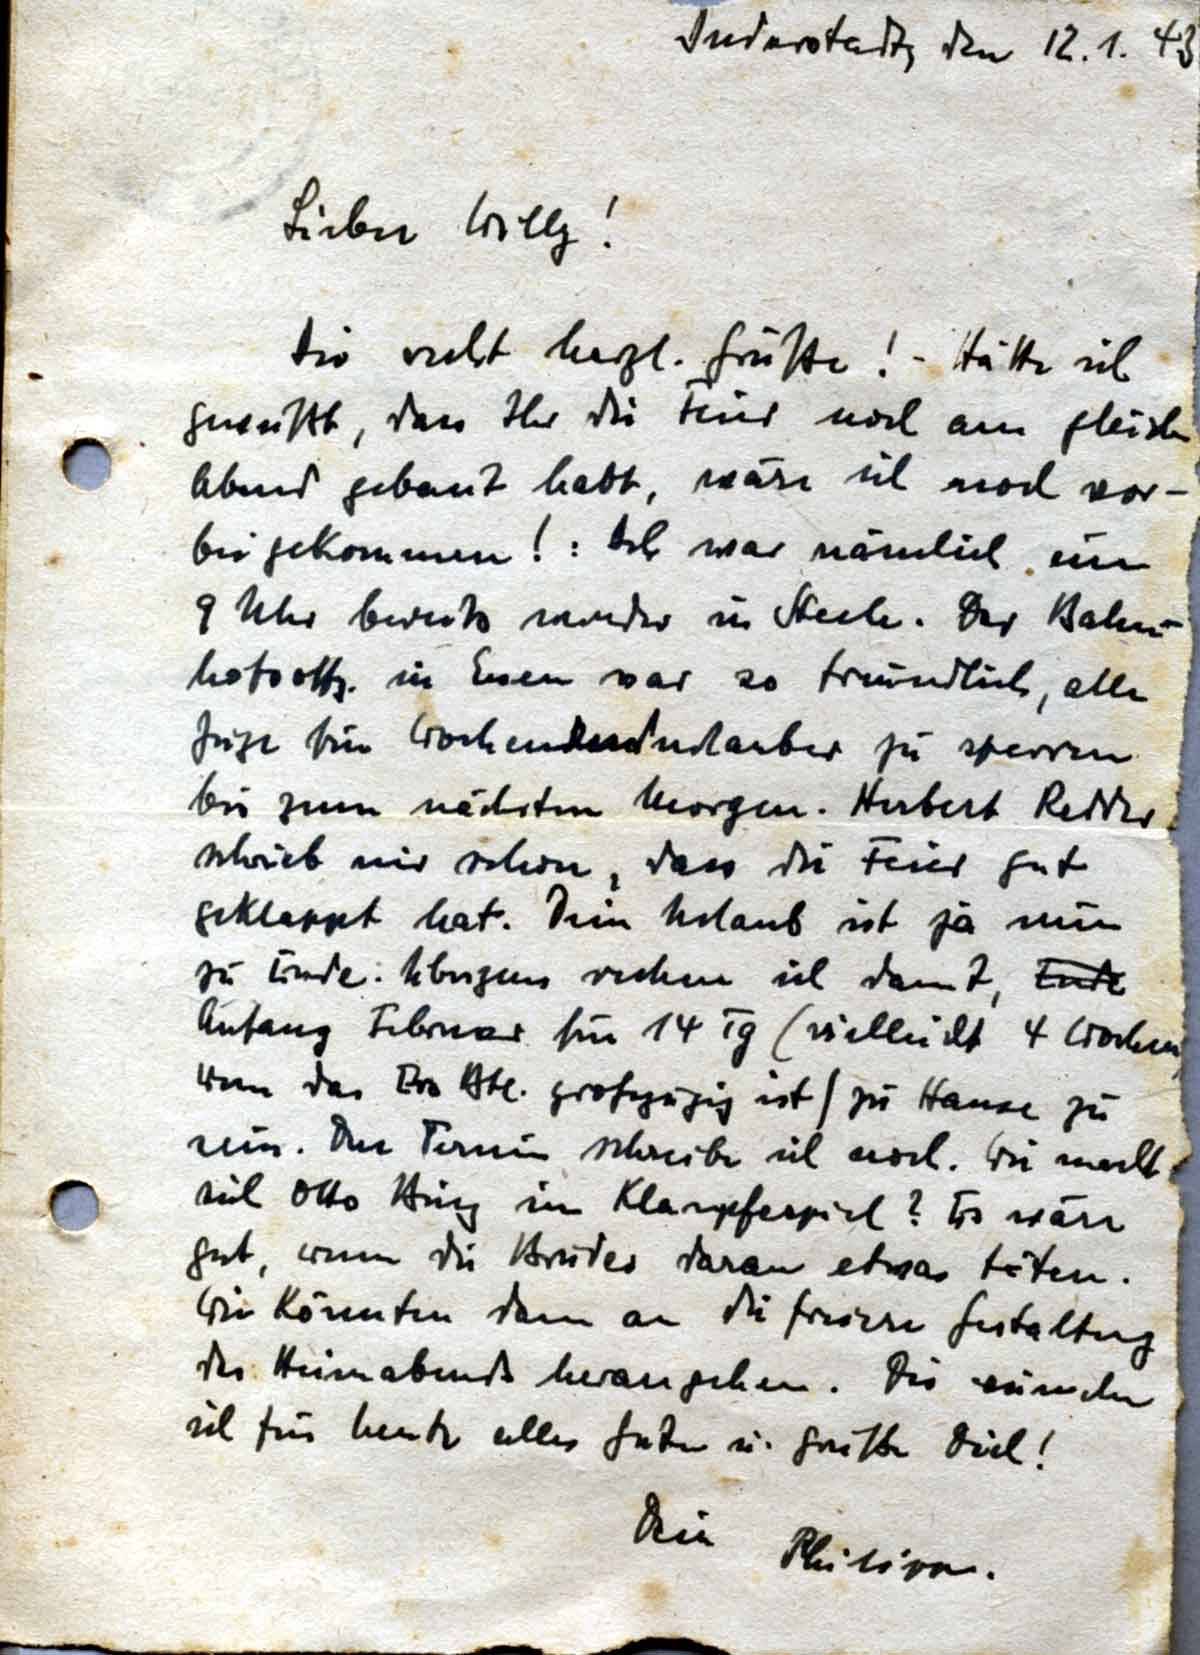 Duderstadt, den 12.1.43
Lieber Willy!
Dir recht herzl. Grüße! - Hätte ich
gewußt, dass Ihr die Feier noch am gleichen
Abend gebaut habt, wäre ich noch vor-
bei gekommen! : Ich war nämlich um
9 Uhr bereits wieder in Steele. Der Bahn-
hofsoffz. in Essen war so freundlich, alle
Züge für Wochenendurlauber zu sperren
bis zum nächsten Morgen. Herbert Redder
schrieb mir schon, dass die Feier gut
geklappt hat. Dein Urlaub ist ja nun
zu Ende. Übrigens rechne ich damit, Ende
Anfang Februar für 14 Tg (vielleicht 4 Wochen,
wenn das Ers Btl. großzügig ist) zu Hause zu
sein. Den Termin schreibe ich noch. Wie macht
sich Otto im Klampfespiel? Es wäre
gut, wenn die Brüder daran etwas täten.
Wir könnten dann an die freiere Gestaltung
des Heimabends herangehen. Dir wünsche
ich für heute alles Gute u. grüße Dich!
Dein Philipp.